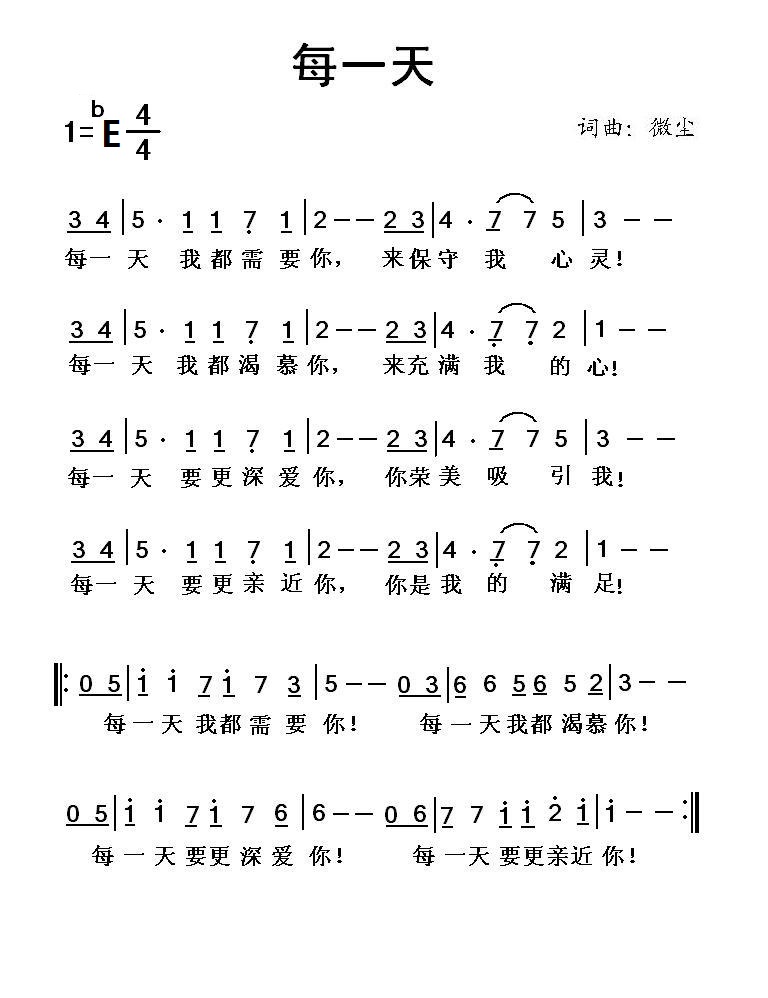 每一天
1=bE 4/4
词曲：微尘
3 4 | 5 · 1 1 7 1 | 2 — — 2 3 | 4 · 7 7 5 | 3 — —
每一 天 我都需要你， 来保守 我 心灵！
3 4 | 5 · 1 1 7 1 | 2 — — 2 3 | 4 · 7 7 2 | 1 — —
每一 天 我都渴慕你， 来充满 我 的心！
3 4 | 5 · 1 1 7 1 | 2 — — 2 3 | 4 · 7 7 5 | 3 — —
每一 天 要更深爱你， 你荣美 吸 引我！
3 4 | 5 · 1 1 7 1 | 2 — — 2 3 | 4 · 7 7 2 | 1 — —
每一 天 要更亲近你， 你是我 的 满足！
‖: 0 5 | 1 1 7 1 7 3 | 5 — — 0 3 | 6 6 5 6 5 2 | 3 — —
每一天我都需要你！ 每一天我都渴慕你！
0 5 | 1 1 7 1 7 6 | 6 — — 0 6 | 7 7 1 1 2 1 | 1 — — :‖
每一天要更深爱你！ 每一天要更亲近你！